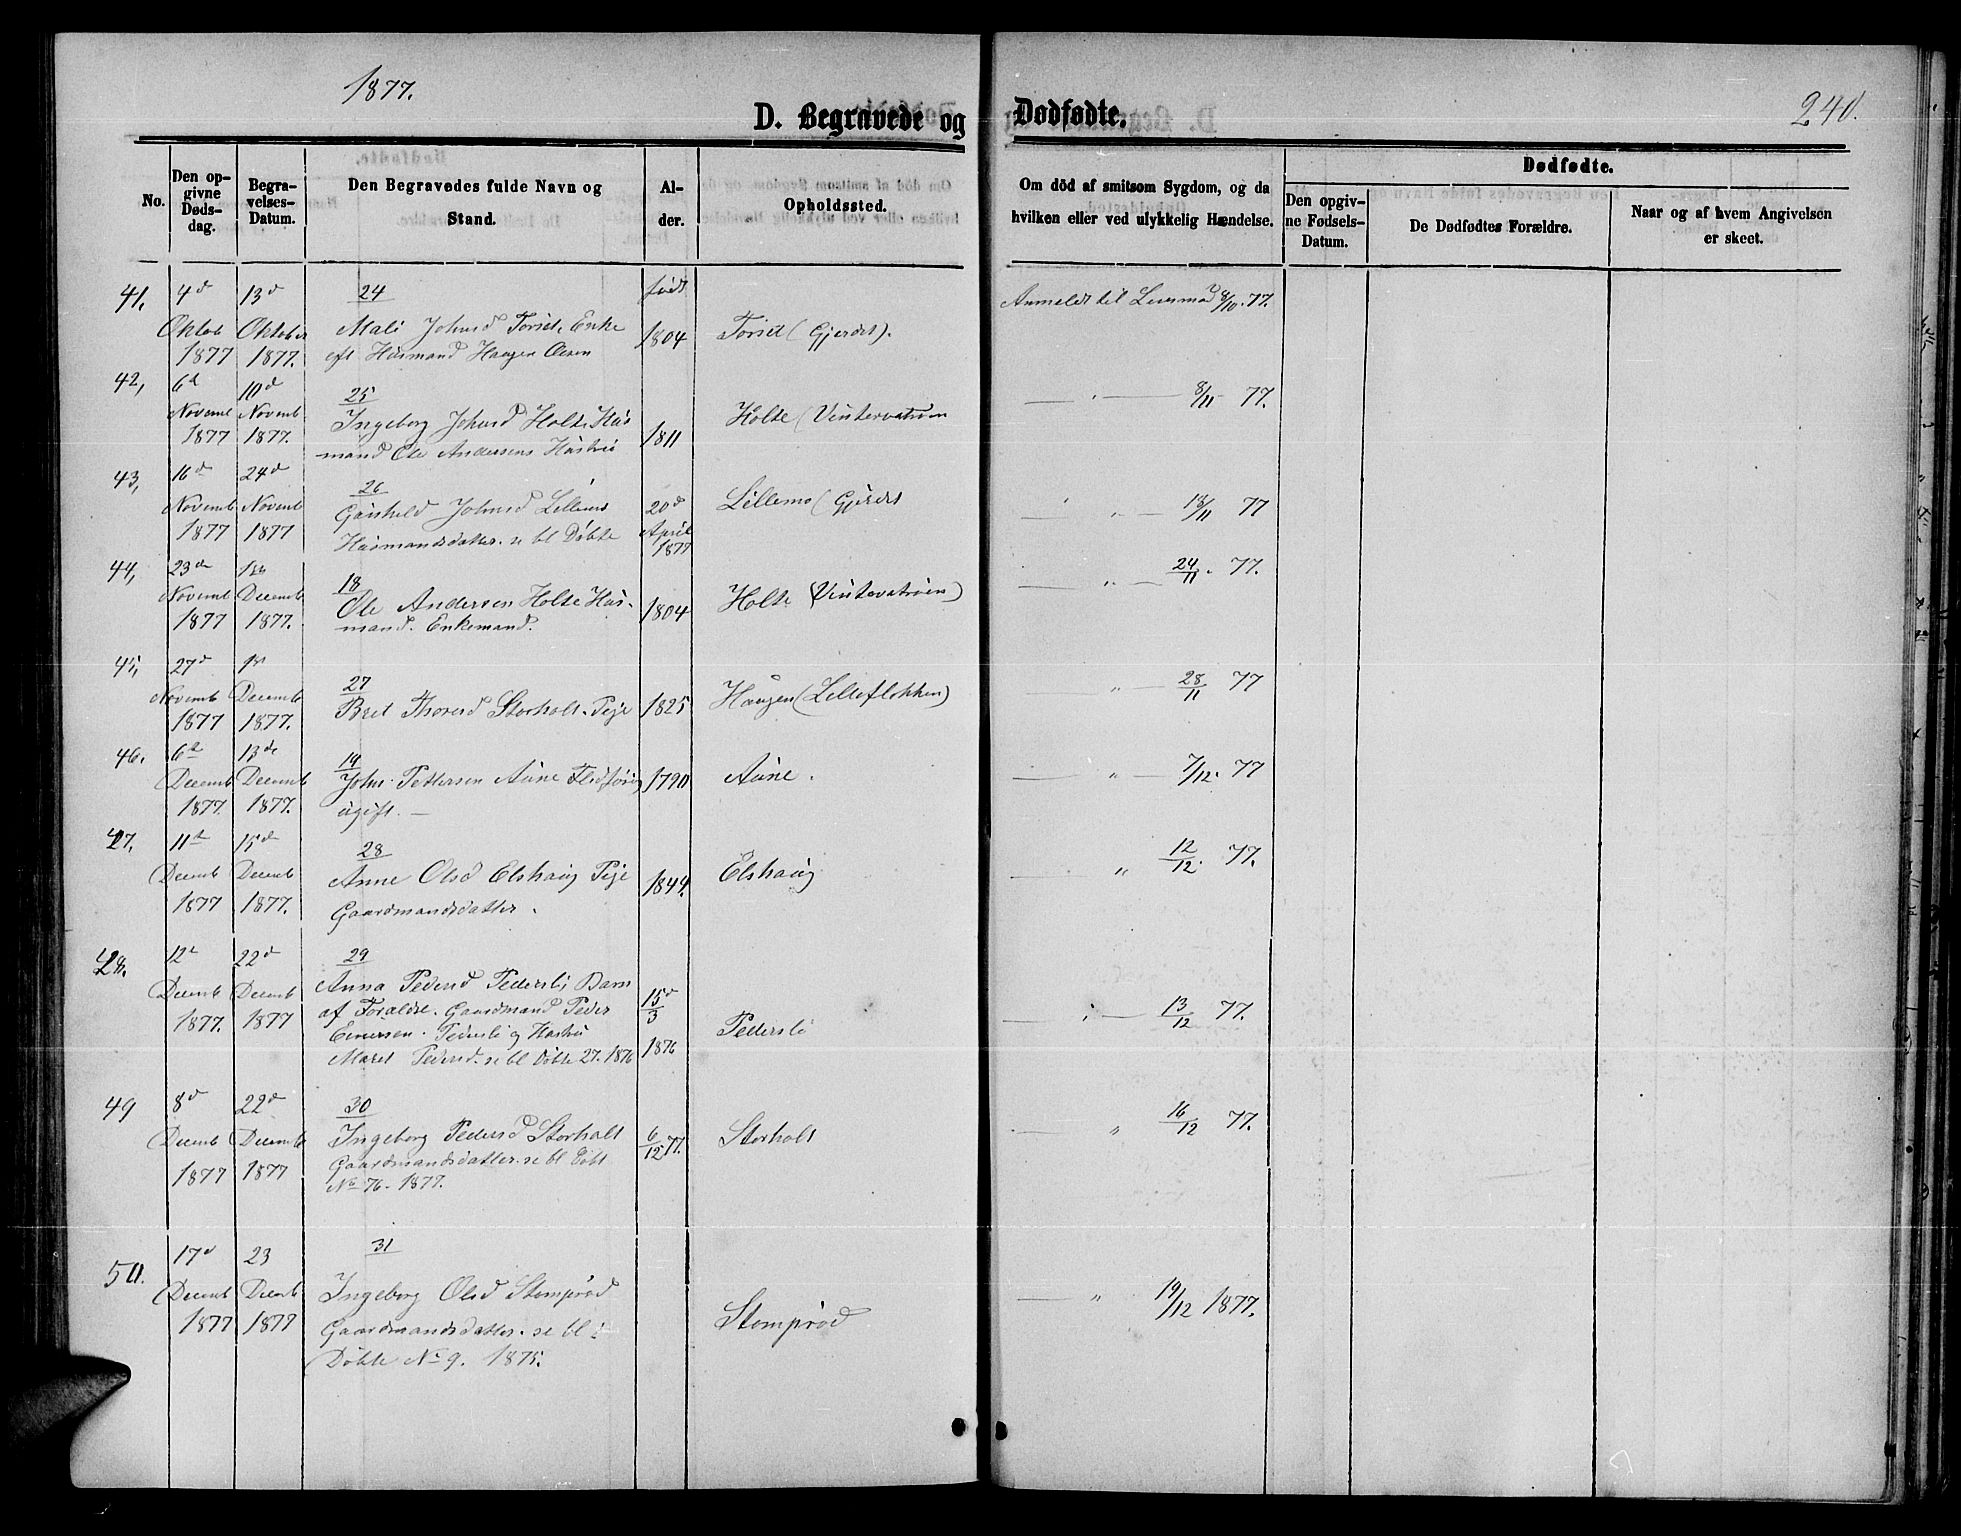 1877.
240.
D. Begravede og Dødfødte.
No.
Den op-
givne
Døds-
dag.
Begra-
velses-
Datum.
Den Begravedes fulde Navn og
Stand.
Al-
der.
Opholdssted.
Om död af smitsom Sygdom, og da
hvilken eller ved ulykkelig Hændelse.
Dødfødte.
Den opgiv-
ne Fødsels-
Datum.
De Dødfødtes Forældre.
Naar og af hvem Angivelsen
er skeet.
41, 4d 13d 24 født
Anmeldt til 8/10. 77.
Oktob Oktober Mali Johnsd Torset. Enke 1804 Torset (Gjerdet).
1877 1877. eft Husmand Haagen Olsen
42, 6d 10d 25
— " — 8/11 - 77.
Novemb Novemb Ingeborg Johnsd Holte Hus 1811 Holte (Vintervatnøen
1877 1877. mand Ole Andersens Hustru
43, 16d 24d 26
Novemb Novemb Johnsd Lillemo 20d Lillemo (Gjerdet
— " — 18/11 77
1877 1877 Husmandsdatter. se bl Døbte April
1877
44, 23de 1ste 18
— " — 24/11. 77.
Novemb Decemb Ole Andersen Holte Hus- 1804 Holte (Vintervatnøen)
1877 1877. mand. Enkemand.
45, 27d 1st 27
— " — 28/11 77
Novemb Decemb Beret Thorsd Storholt. Pige 1825 Haugen (Lilleflokken)
1877 1877.
46. 6d 13de 19
Decemb Decemb John Pettersen Aune 1790 Aune.
— " — 7/12. 77
1877. 1877. ugift. —
47. 11d 15d 28
— " 12/12. 77.
Decemb Decemb Anne Olsd Elshaug Pige 1844. Elshaug
1877 1877. Gaardmandsdatter.
48. 12d 22d 29
Decemb Decemb Anna Pedersd Pedersli Barn 15d/3
1877. 1877 af Forældre. Gaardmand Peder
— " — 13/12 77.
Pedersli og Hustru Pedersli
Maret Pedersd. se bl Døbte 27. 1876 1876
49 8d 22d 30
— " 16/12 77.
Decemb Decemb Ingeborg Pedersd Storholt 6/12 77. Storholt
1877 1877 Gaardmandsdatter. se bl Døbt
No 76. 1877.
50. 17d 23 31
Decemb Decemb Ingeborg Olsd Stomprød
— " 19/12 1877.
1877 1877 Gaardmandsdatter. se bl. Stomprød
Døbte No 9. 1875.